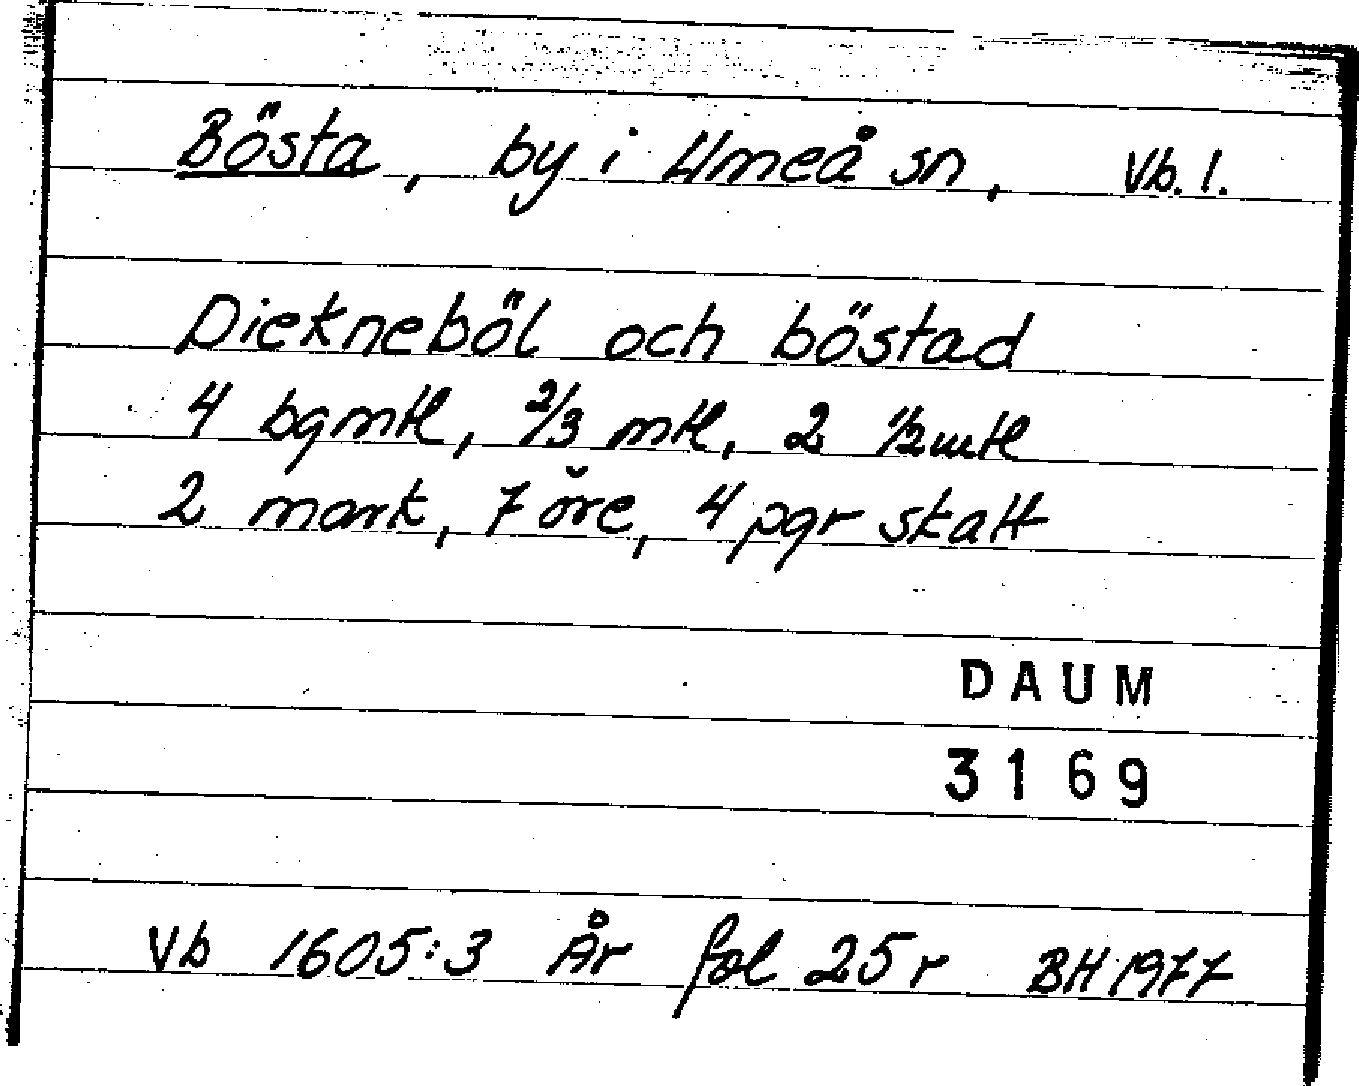 Bösta, by i Umeå sn, Vb. l.
Diekneböl och böstad
4 bgmtl, 2/3 mtl, 2 1/2 mtl
2 mark, 7 öre, 4 pgr skatt
DAUM
3169
Vb 1605:3 År fol 25 r BH 1977